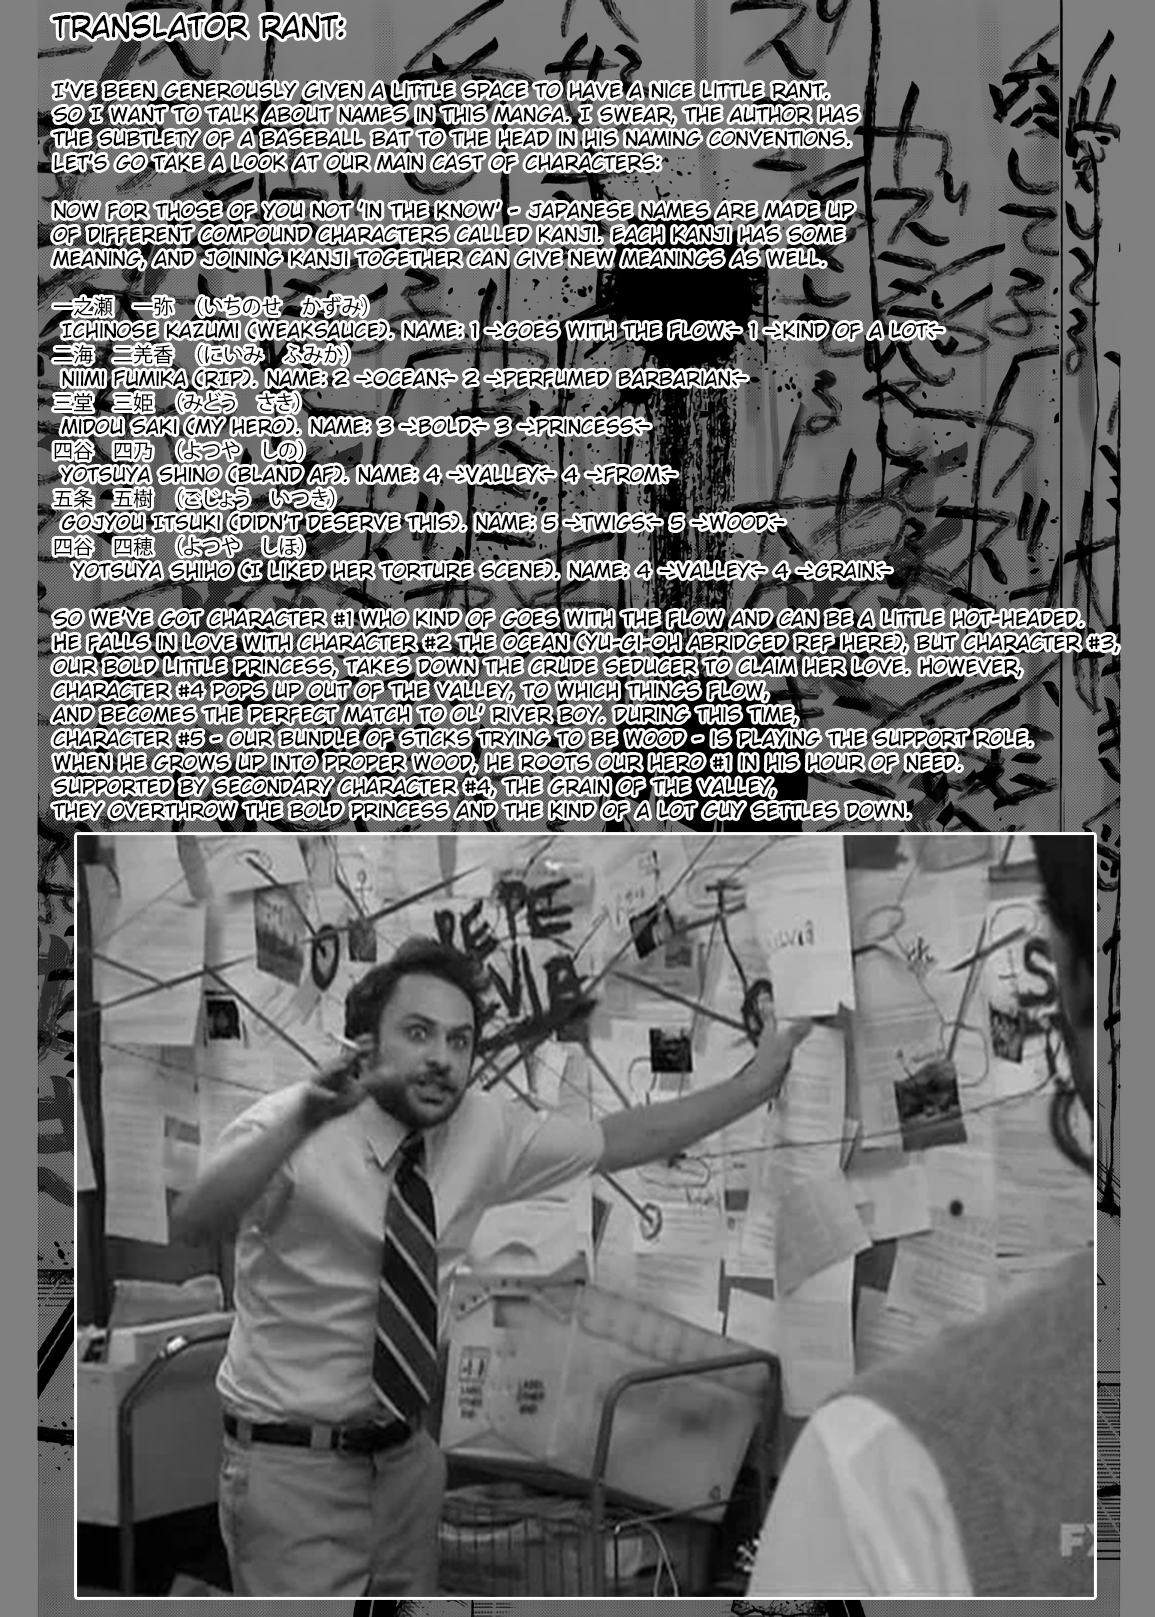 TRANSLATOR RANT:
I'VE BEEN GENEROUSLY GIVEN A LITTLE SPACE TO HAVE A NICE LITTLE RANT.
SO I WANT TO TALK ABOUT NAMES IN THIS MANGA. I SWEAR, THE AUTHOR HAS
THE SUBTLETY OF A BASEBALL BAT TO THE HEAD IN HIS NAMING CONVENTIONS.
LET'S GO TAKE A LOOK AT OUR MAIN CAST OF CHARACTERS:
NOW FOR THOSE OF YOU NOT 'IN THE KNOW' - JAPANESE NAMES ARE MADE UP
OF DIFFERENT COMPOUND CHARACTERS CALLED KANJI. EACH KANJI HAS SOME
MEANING, AND JOINING KANJI TOGETHER CAN GIVE NEW MEANINGS AS WELL.
一之瀬　一弥　（いちのせ　かずみ）
ICHINOSE KAZUMI (WEAKSAUCE). NAME: 1 ->GOES WITH THE FLOW<- 1 ->KIND OF A LOT<-
二海　二羌香　（にいみ　ふみか）
NIIMI FUMIKA (RIP). NAME: 2 ->OCEAN<- 2 ->PERFUMED BARBARIAN<-
三堂　三姫　（みどう　さき）
MIDOU SAKI (MY HERO). NAME: 3 ->BOLD<- 3 ->PRINCESS<-
四谷　四乃　（よつや　しの）
YOTSUYA SHINO (BLAND AF). NAME: 4 ->VALLEY<- 4 ->FROM<-
五条　五樹　（ごじょう　いつき）
GOJYOU ITSUKI (DIDN'T DESERVE THIS). NAME: 5 ->TWIGS<- 5 ->WOOD<-
四谷　四穂　（よつや　しほ）
YOTSUYA SHIHO (I LIKED HER TORTURE SCENE). NAME: 4 ->VALLEY<- 4 ->GRAIN<-
SO WE'VE GOT CHARACTER #1 WHO KIND OF GOES WITH THE FLOW AND CAN BE A LITTLE HOT-HEADED.
HE FALLS IN LOVE WITH CHARACTER #2 THE OCEAN (YU-GI-OH ABRIDGED REF HERE), BUT CHARACTER #3,
OUR BOLD LITTLE PRINCESS, TAKES DOWN THE CRUDE SEDUCER TO CLAIM HER LOVE. HOWEVER,
CHARACTER #4 POPS UP OUT OF THE VALLEY, TO WHICH THINGS FLOW,
AND BECOMES THE PERFECT MATCH TO OL' RIVER BOY. DURING THIS TIME,
CHARACTER #5 - OUR BUNDLE OF STICKS TRYING TO BE WOOD - IS PLAYING THE SUPPORT ROLE.
WHEN HE GROWS UP INTO PROPER WOOD, HE ROOTS OUR HERO #1 IN HIS HOUR OF NEED.
SUPPORTED BY SECONDARY CHARACTER #4, THE GRAIN OF THE VALLEY,
THEY OVERTHROW THE BOLD PRINCESS AND THE KIND OF A LOT GUY SETTLES DOWN.
PEPE
FX